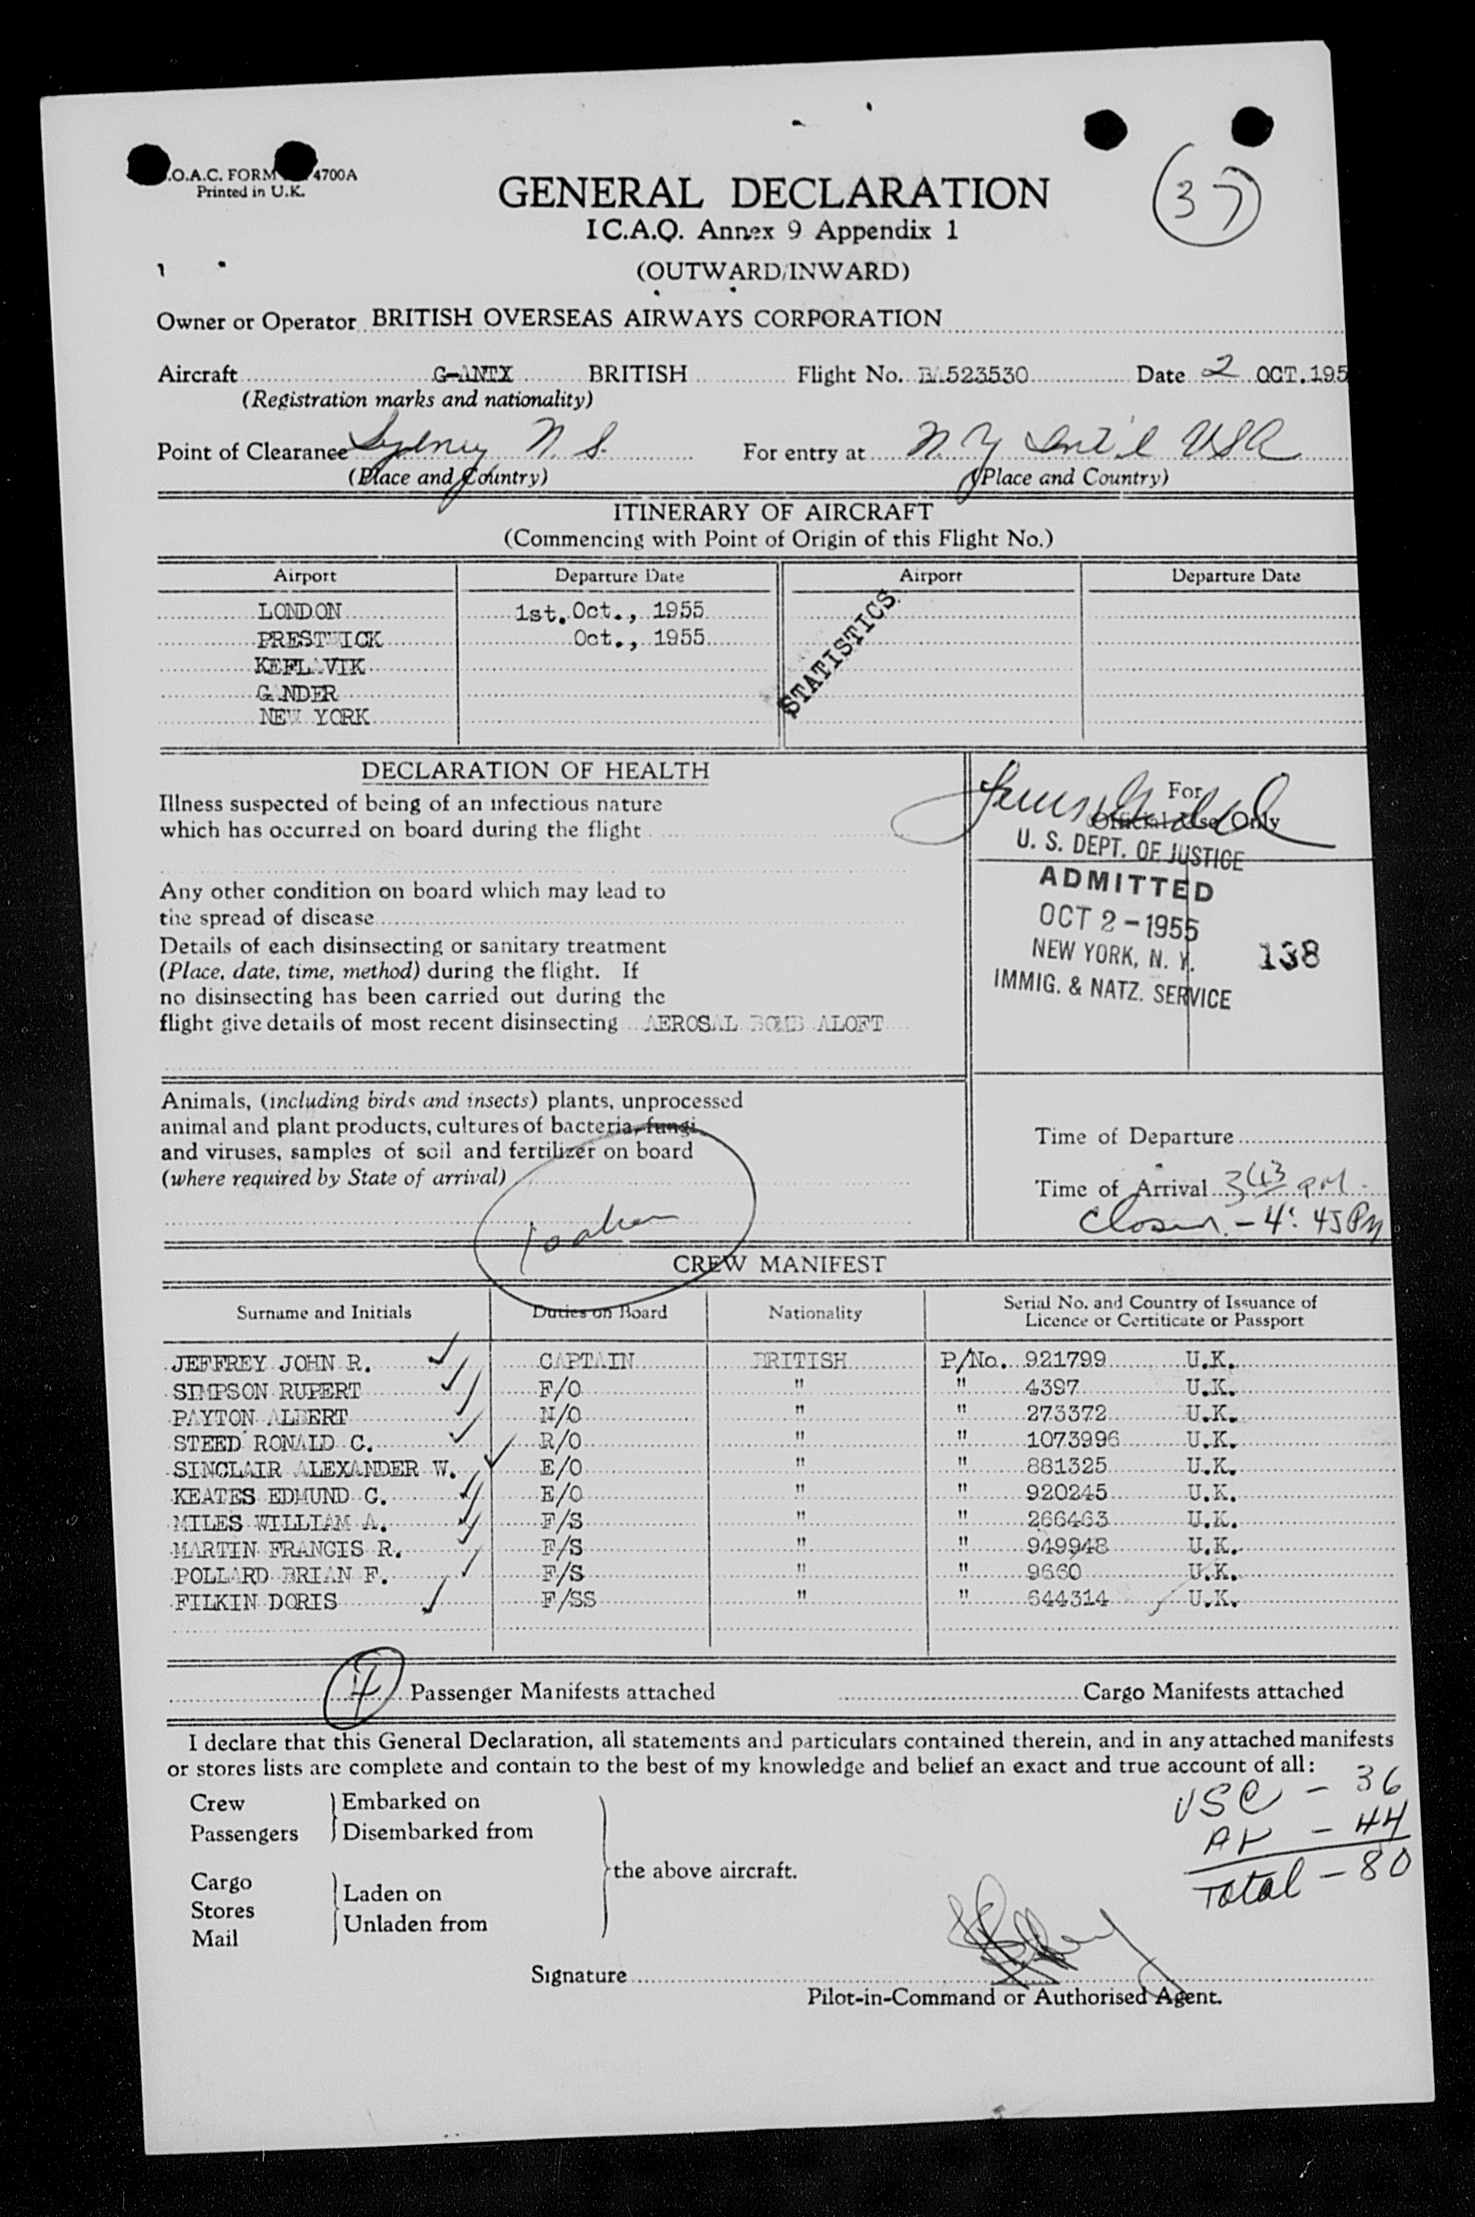 .O.A.C. FORM 4700A
Printed in U.K.
37
GENERAL DECLARATION
I C.A.O. Annex 9 Appendix 1
(OUTWARD/INWARD)
Owner or Operator BRITISH OVERSEAS AIRWAYS CORPORATION
Aircraft G-ANTX BRITISH Flight No. BA523530 Date 2 OCT. 195
(Registration marks and nationality)
Point of Clearance Sydney N. S. For entry at N. Y Int'l USA
(Place and Country) (Place and Country)
ITINERARY OF AIRCRAFT
(Commencing with Point of Origin of this Flight No.)
Airport Departure Date Airport Departure Date
LONDON 1st. Oct., 1955
PRESTWICK Oct., 1955
KEFLAVIK
GANDER
NEW YORK
STATISTICS.
DECLARATION OF HEALTH
Illness suspected of being of an infectious nature
which has occurred on board during the flight
Any other condition on board which may lead to
the spread of disease
Details of each disinsecting or sanitary treatment
(Place, date, time, method) during the flight. If
no disinsecting has been carried out during the
flight give details of most recent disinsecting AEROSAL BOMB ALOFT
For
Official Use Only
U. S. DEPT. OF JUSTICE
ADMITTED
OCT 2 - 1955
NEW YORK, N. Y.
IMMIG. & NATZ. SERVICE
138
Animals, (including birds and insects) plants, unprocessed
animal and plant products, cultures of bacteria, fungi
and viruses, samples of soil and fertilizer on board
(where required by State of arrival)
Time of Departure
Time of Arrival 343 P.M.
Closed - 4:45 PM
CREW MANIFEST
Surname and Initials Duties on Board Nationality Serial No. and Country of Issuance of
Licence or Certificate or Passport
JEFFREY JOHN R. CAPTAIN BRITISH P/No. 921799 U.K.
SIMPSON RUPERT F/O " " 4397 U.K.
PAYTON ALBERT N/O " " 273372 U.K.
STEED RONALD C. R/O " " 1073996 U.K.
SINCLAIR ALEXANDER W. E/O " " 881325 U.K.
KEATES EDMUND G. E/O " " 920245 U.K.
MILES WILLIAM A. F/S " " 266463 U.K.
MARTIN FRANCIS R. F/S " " 949948 U.K.
POLLARD BRIAN F. F/S " " 9660 U.K.
FILKIN DORIS F/SS " " 644314 U.K.
4 Passenger Manifests attached Cargo Manifests attached
I declare that this General Declaration, all statements and particulars contained therein, and in any attached manifests
or stores lists are complete and contain to the best of my knowledge and belief an exact and true account of all:
Crew Embarked on
Passengers Disembarked from
Cargo Laden on
Stores Unladen from
Mail
the above aircraft.
USC - 36
AL - 44
Total - 80
Signature
Pilot-in-Command or Authorised Agent.